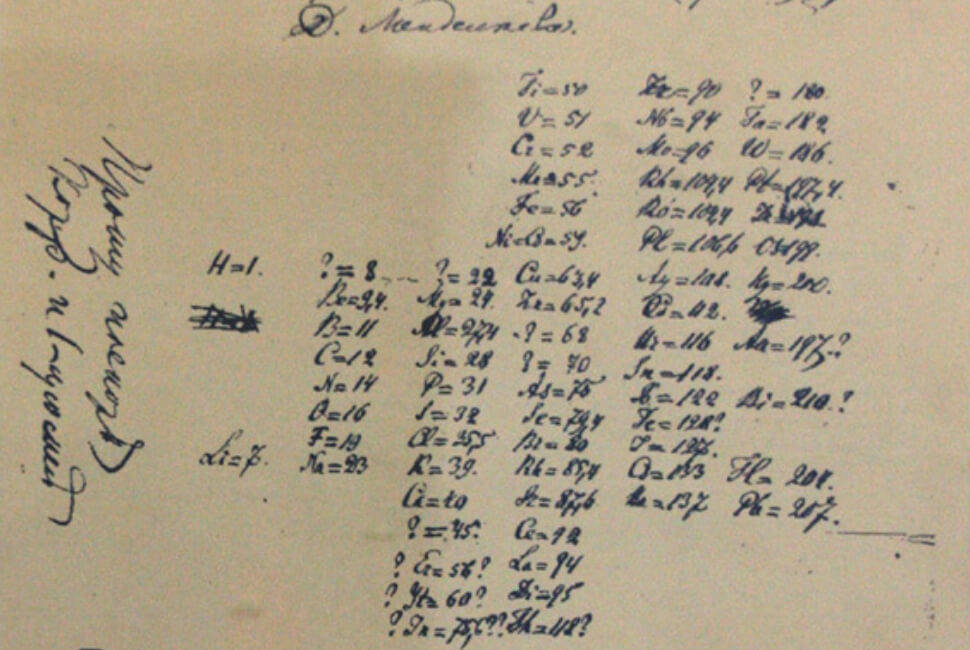 Д. Менделѣева.
Ti=50 Zr=90 ?=180.
V=51 Nb=94 Ta=182
Cr=52 Mo=96 W=186.
Mn=55. Rh=104,4 Pt=197,4.
Fe=56 Ru=104,4
Ni=Co=59. Pl=106,6 Os=199.
H=1. ?=8 ?=22 Cu=63,4 Ag=108. Hg=200.
Be=9,4. Mg=24. Zn=65,2 Cd=112.
B=11 Al=27,4 ?=68 Ur=116 Au=197?
C=12 Si=28 ?=70 Sn=118.
N=14 P=31 As=75 Sb=122 Bi=210?
O=16 S=32 Se=79,4 Te=128?
F=19 Cl=35,5 Br=80 J=127.
Li=7. Na=23 K=39. Rb=85,4 Cs=133 Tl=204.
Ca=40 Sr=87,6 Ba=137 Pb=207.
?=45. Ce=92
?Er=56? La=94
?Yt=60? Di=95
?In=75,6?? Th=118?
Прошу